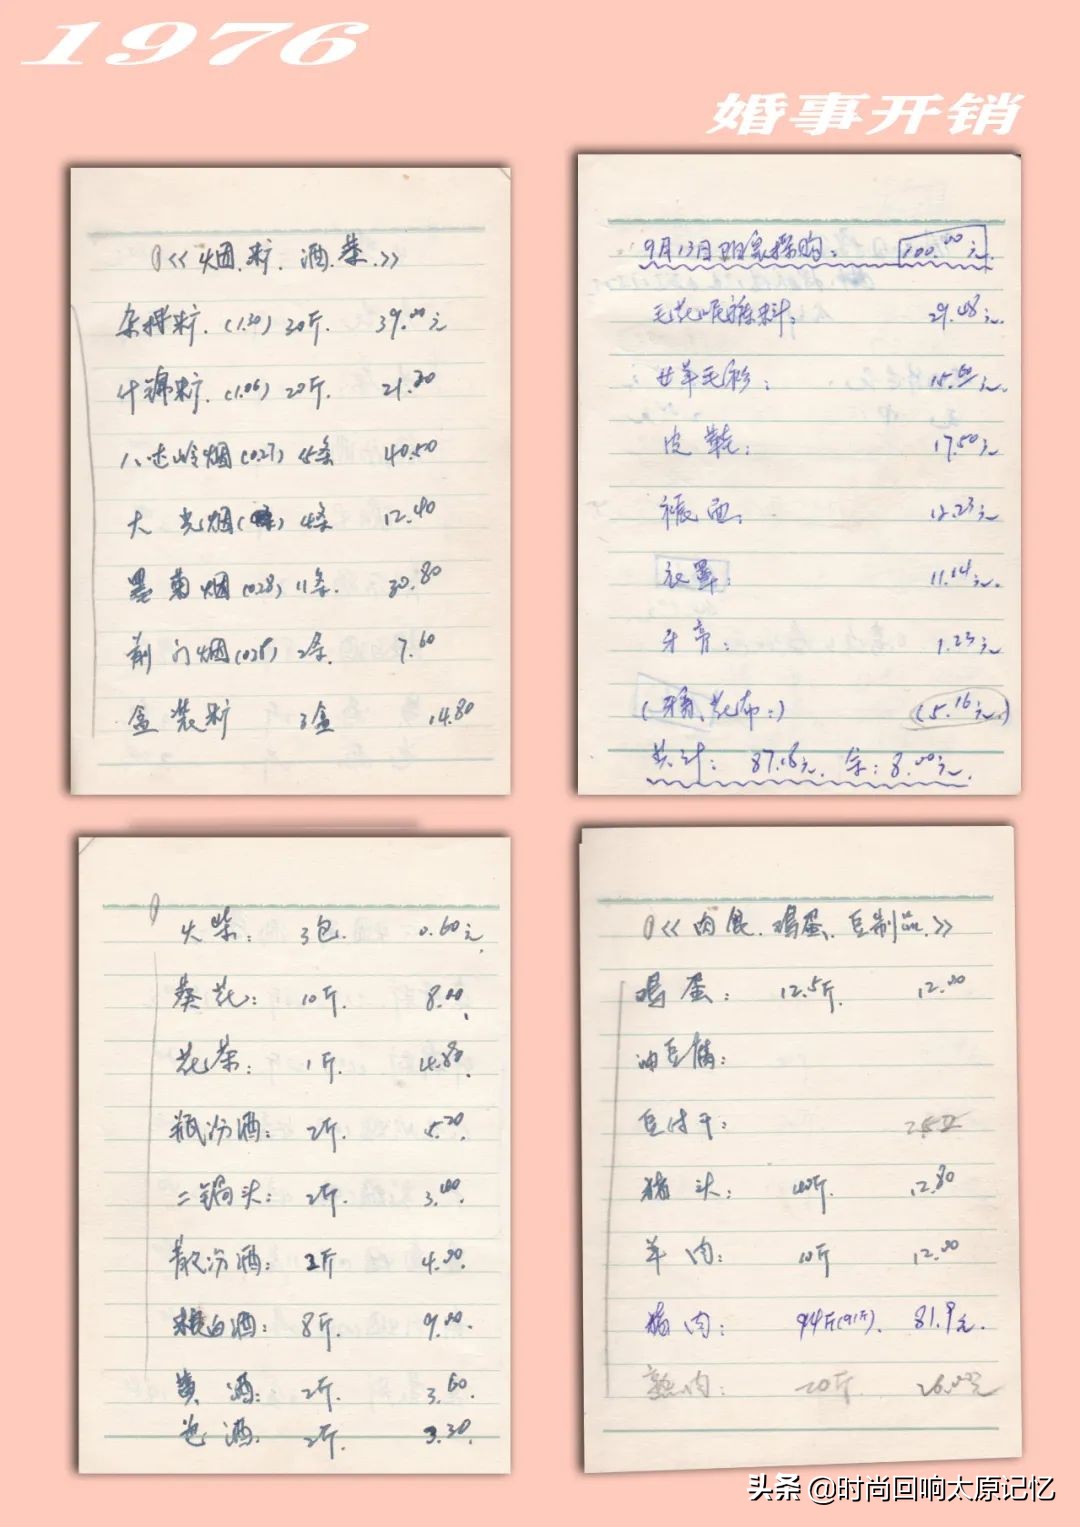 1976
婚事开销
《烟.籽.酒.茶.》
杂拌籽.(1.30)30斤. 39.00元
什锦籽.(1.06)20斤. 21.20
八达岭烟(027)15条 40.50
大光烟( )4条 12.40
墨菊烟(028)11条. 30.80
荆门烟(038)2条. 7.60
盒装籽 3盒 14.80
9月13日 采购: 100.00元.
毛花呢裤料: 29.48元.
女羊毛衫: 15.60元
皮鞋: 17.50元
被面: 12.23元
衣罩: 11.14元.
牙膏: 1.23元
( 花布:) (5.16元.)
共计: 87.18元. 余:8.00元.
火柴: 3包. 0.60元
葵花: 10斤. 8.00.
花茶: 1斤. 4.80.
瓶汾酒: 2斤. 5.20.
二锅头: 2斤. 3.40.
散汾酒: 2斤. 4.00.
白酒: 8斤. 9.00.
黄酒: 2斤. 3.60.
色酒. 2斤. 3.30.
《肉食.鸡蛋、豆制品.》
鸡蛋: 12.5斤. 12.00
油豆腐:
豆付干:
猪头: 40斤. 12.80
羊肉: 10斤 12.00
猪肉: 94斤(91斤). 81.9元.
熟肉: 20斤. 26.00元
头条 @时尚回响太原记忆